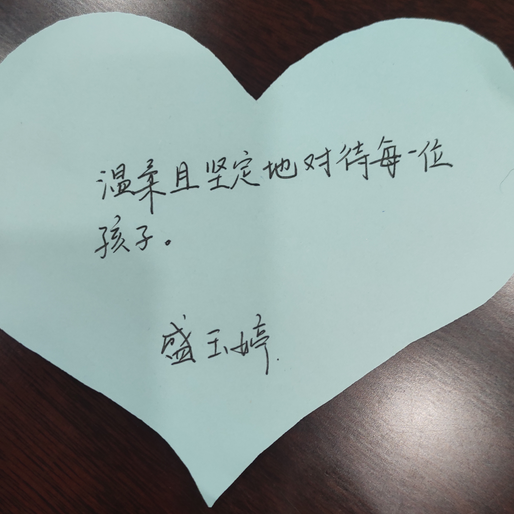 温柔且坚定地对待每一位
孩子。
盛玉婷